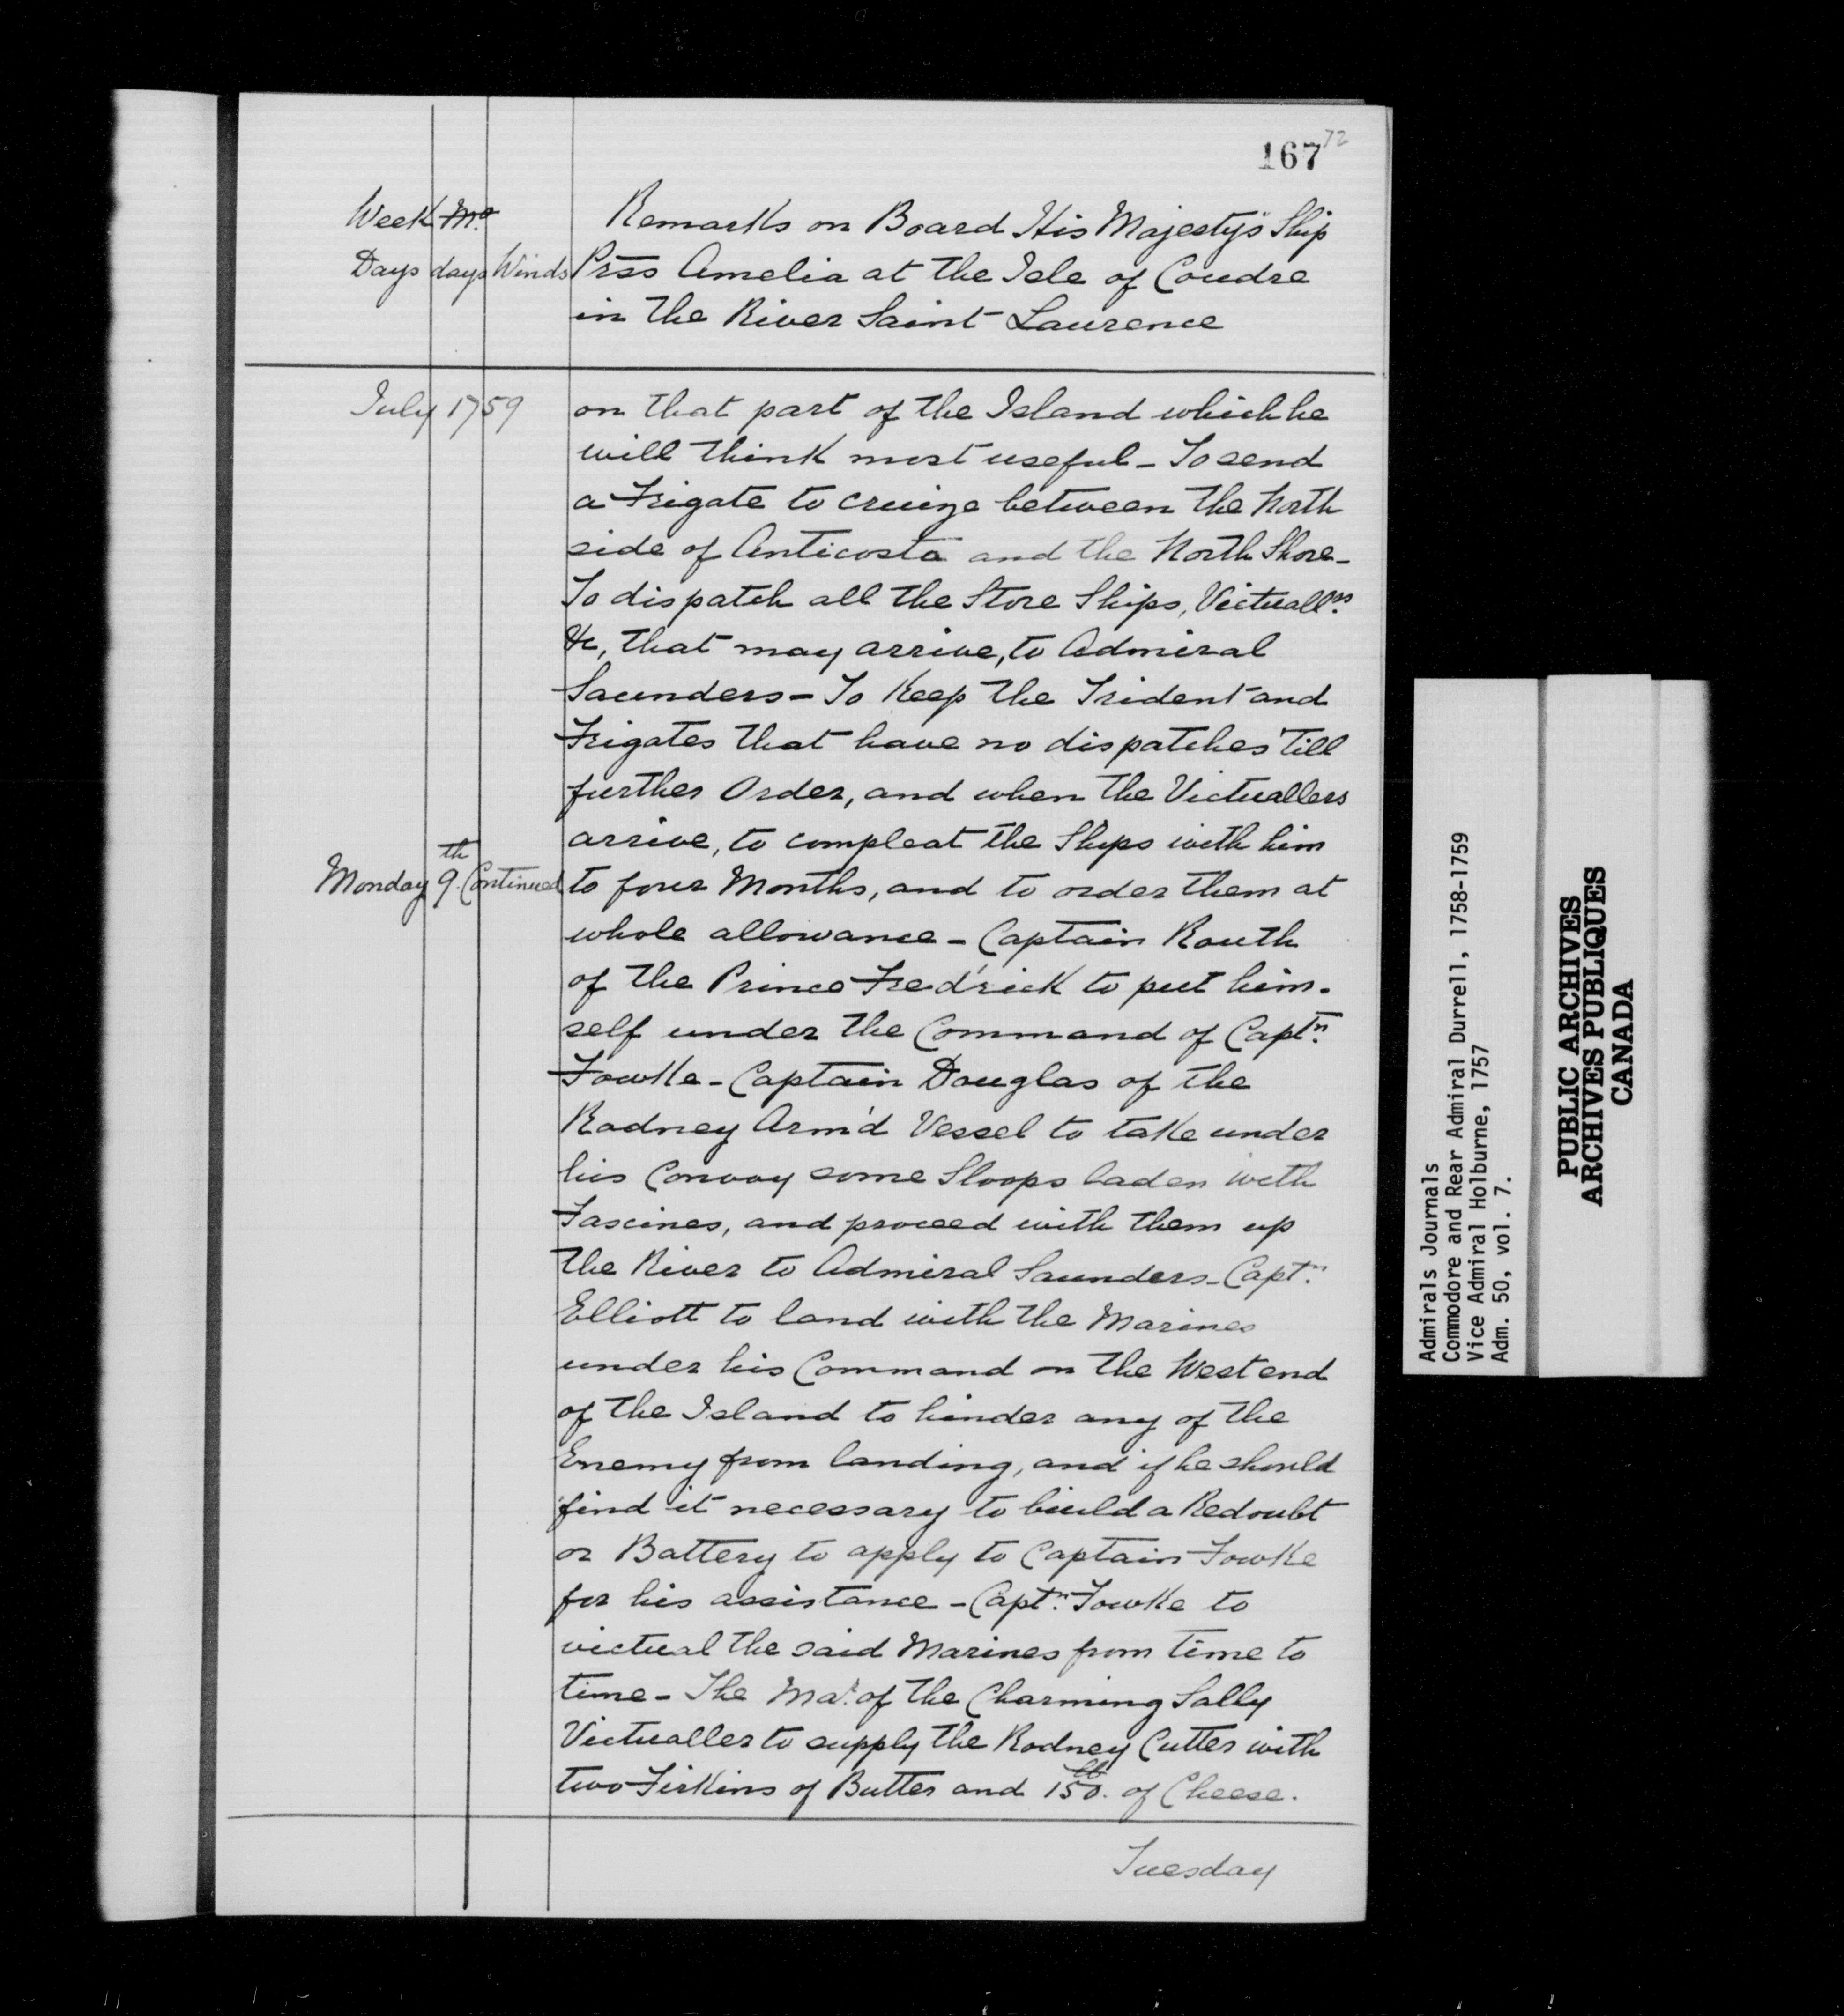 167 72
Week Mo.
Days days Winds
Remarks on Board His Majesty's Ship
Prss Amelia at the Isle of Coudre
in the River Saint Laurence
July 1759
on that part of the Island which he
will think most useful - To send
a Frigate to cruize between the North
side of Anticosta and the North Shore -
To dispatch all the Store Ships, Victuallrs.
&c, that may arrive, to Admiral
Saunders - To Keep the Trident and
Frigates that have no dispatches 'till
further Order, and when the Victuallers
arrive, to compleat the Ships with him
Monday 9th. Continued
to four Months, and to order them at
whole allowance - Captain Routh
of the Prince Fred'rick to put him-
self under the Command of Captn.
Fowke - Captain Douglas of the
Rodney Arm'd Vessel to take under
his Convoy some Sloops laden with
Fascines, and proceed with them up
the River to Admiral Saunders - Captn.
Elliott to land with the Marines
under his Command on the West end
of the Island to hinder any of the
Enemy from landing, and if he should
find it necessary to build a Redoubt
or Battery to apply to Captain Fowke
for his assistance - Captn. Fowke to
victual the said Marines from time to
time - The Mar. of the Charming Sally
Victualler to supply the Rodney Cutter with
two Firkins of Butter and 150 lb. of Cheese.
Tuesday
Admirals Journals
Commodore and Rear Admiral Durrell, 1758-1759
Vice Admiral Holburne, 1757
Adm. 50, vol. 7.
PUBLIC ARCHIVES
ARCHIVES PUBLIQUES
CANADA